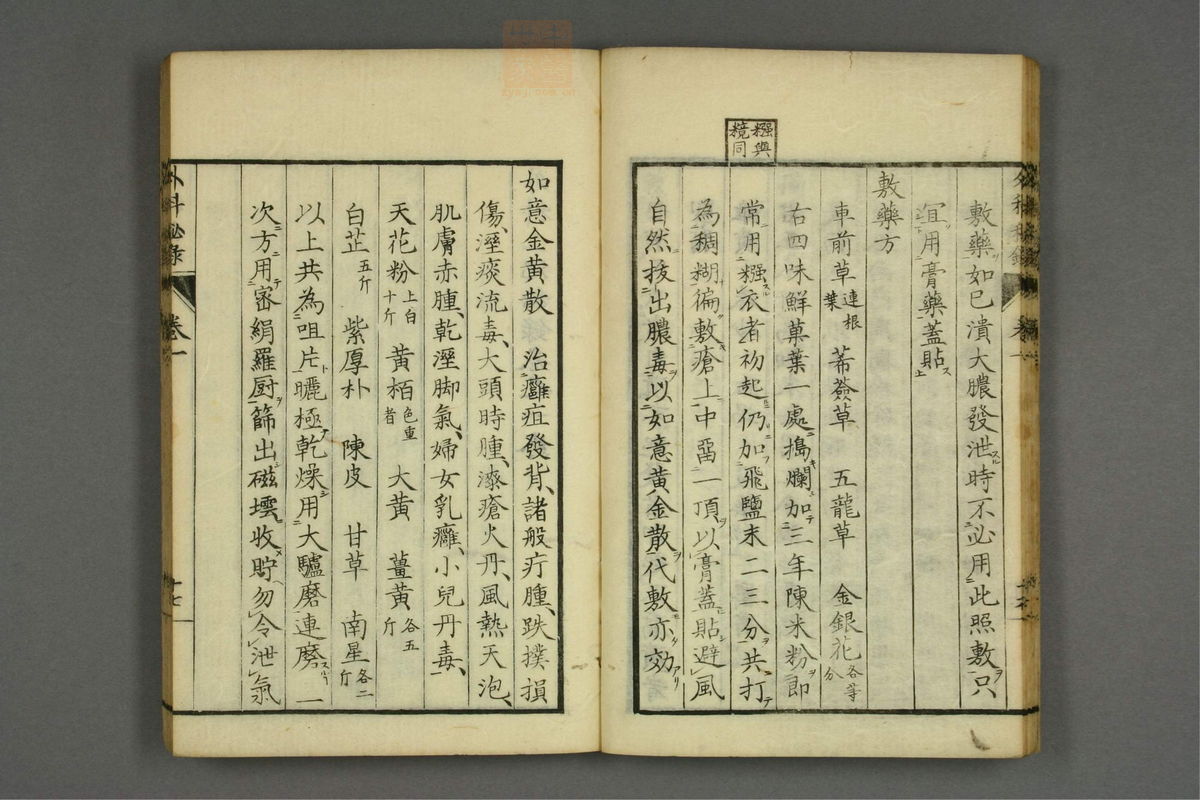 糨與
糡同
敷藥如已潰大膿發泄時不必用此照敷只
宜用膏藥蓋貼
敷藥方
車前草連根葉 豨薟草 五龍草 金銀花各等分
右四味鮮菓葉一處搗爛加三年陳米粉即
常用糨衣者初起仍加飛鹽末二三分共打
為稠糊徧敷瘡上中留一頂以膏蓋貼避風
自然拔出膿毒以如意黃金散代敷亦効
如意金黃散 治癰疽發背諸般疔腫跌撲損
傷溼痰流毒大頭時腫漆瘡火丹風熱天泡
肌膚赤腫乾溼脚氣婦女乳癰小兒丹毒
天花粉上白十斤 黃栢色重者 大黃 薑黃各五斤
白芷五斤 紫厚朴 陳皮 甘草 南星各二斤
以上共為咀片曬極乾燥用大驢磨連磨一
次方用密絹羅厨篩出磁壜收貯勿令泄氣
外科秘錄 卷一 十七